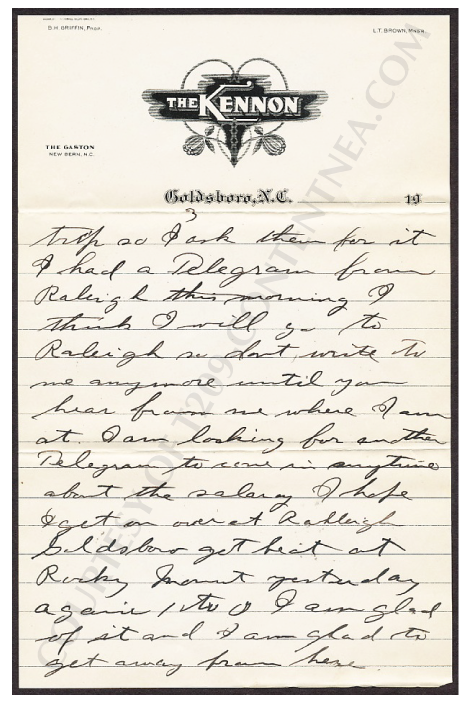 D.H. GRIFFIN, Prop.
L.T. BROWN, MNGR.
THE KENNON
THE GASTON
NEW BERN, N.C.
Goldsboro, N.C. 19
3
trip so I ask them for it
I had a Telegram from
Raleigh this morning I
think I will go to
Raleigh so dont write to
me anymore until you
hear from me where I am
at. I am looking for another
Telegram to come in anytime
about the salaray I hope
I get on over at Rahleigh
Goldsboro got beat at
Rocky Mount yesterday
again 1 to 0 I am glad
of it and I am glad to
get away from here
COURTESY OF T209-CONTENTNEA.COM